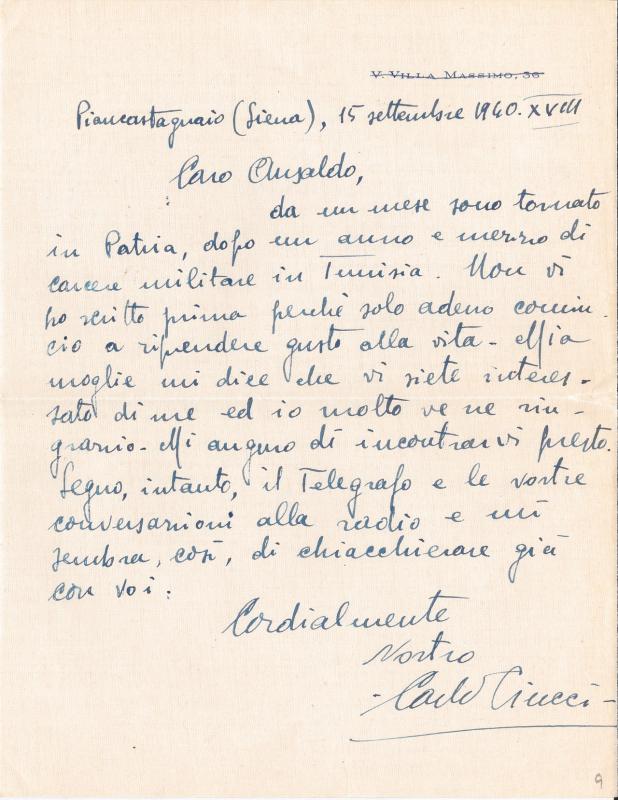 V. VILLA MASSIMO, 36
Piancastagnaio (Siena), 15 settembre 1940. XVIII
Caro Ansaldo,
da un mese sono tornato
in Patria, dopo un anno e mezzo di
carcere militare in Tunisia. Non vi
ho scritto prima perchè solo adesso comin-
cio a riprendere gusto alla vita - Mia
moglie mi dice che vi siete interes-
sato di me ed io molto ve ne rin-
grazio - Mi auguro di incontrarvi presto.
Seguo, intanto, il Telegrafo e le vostre
conversazioni alla radio e mi
sembra, così, di chiacchierare già
con voi.
Cordialmente
Vostro
- Carlo Ciucci -
9